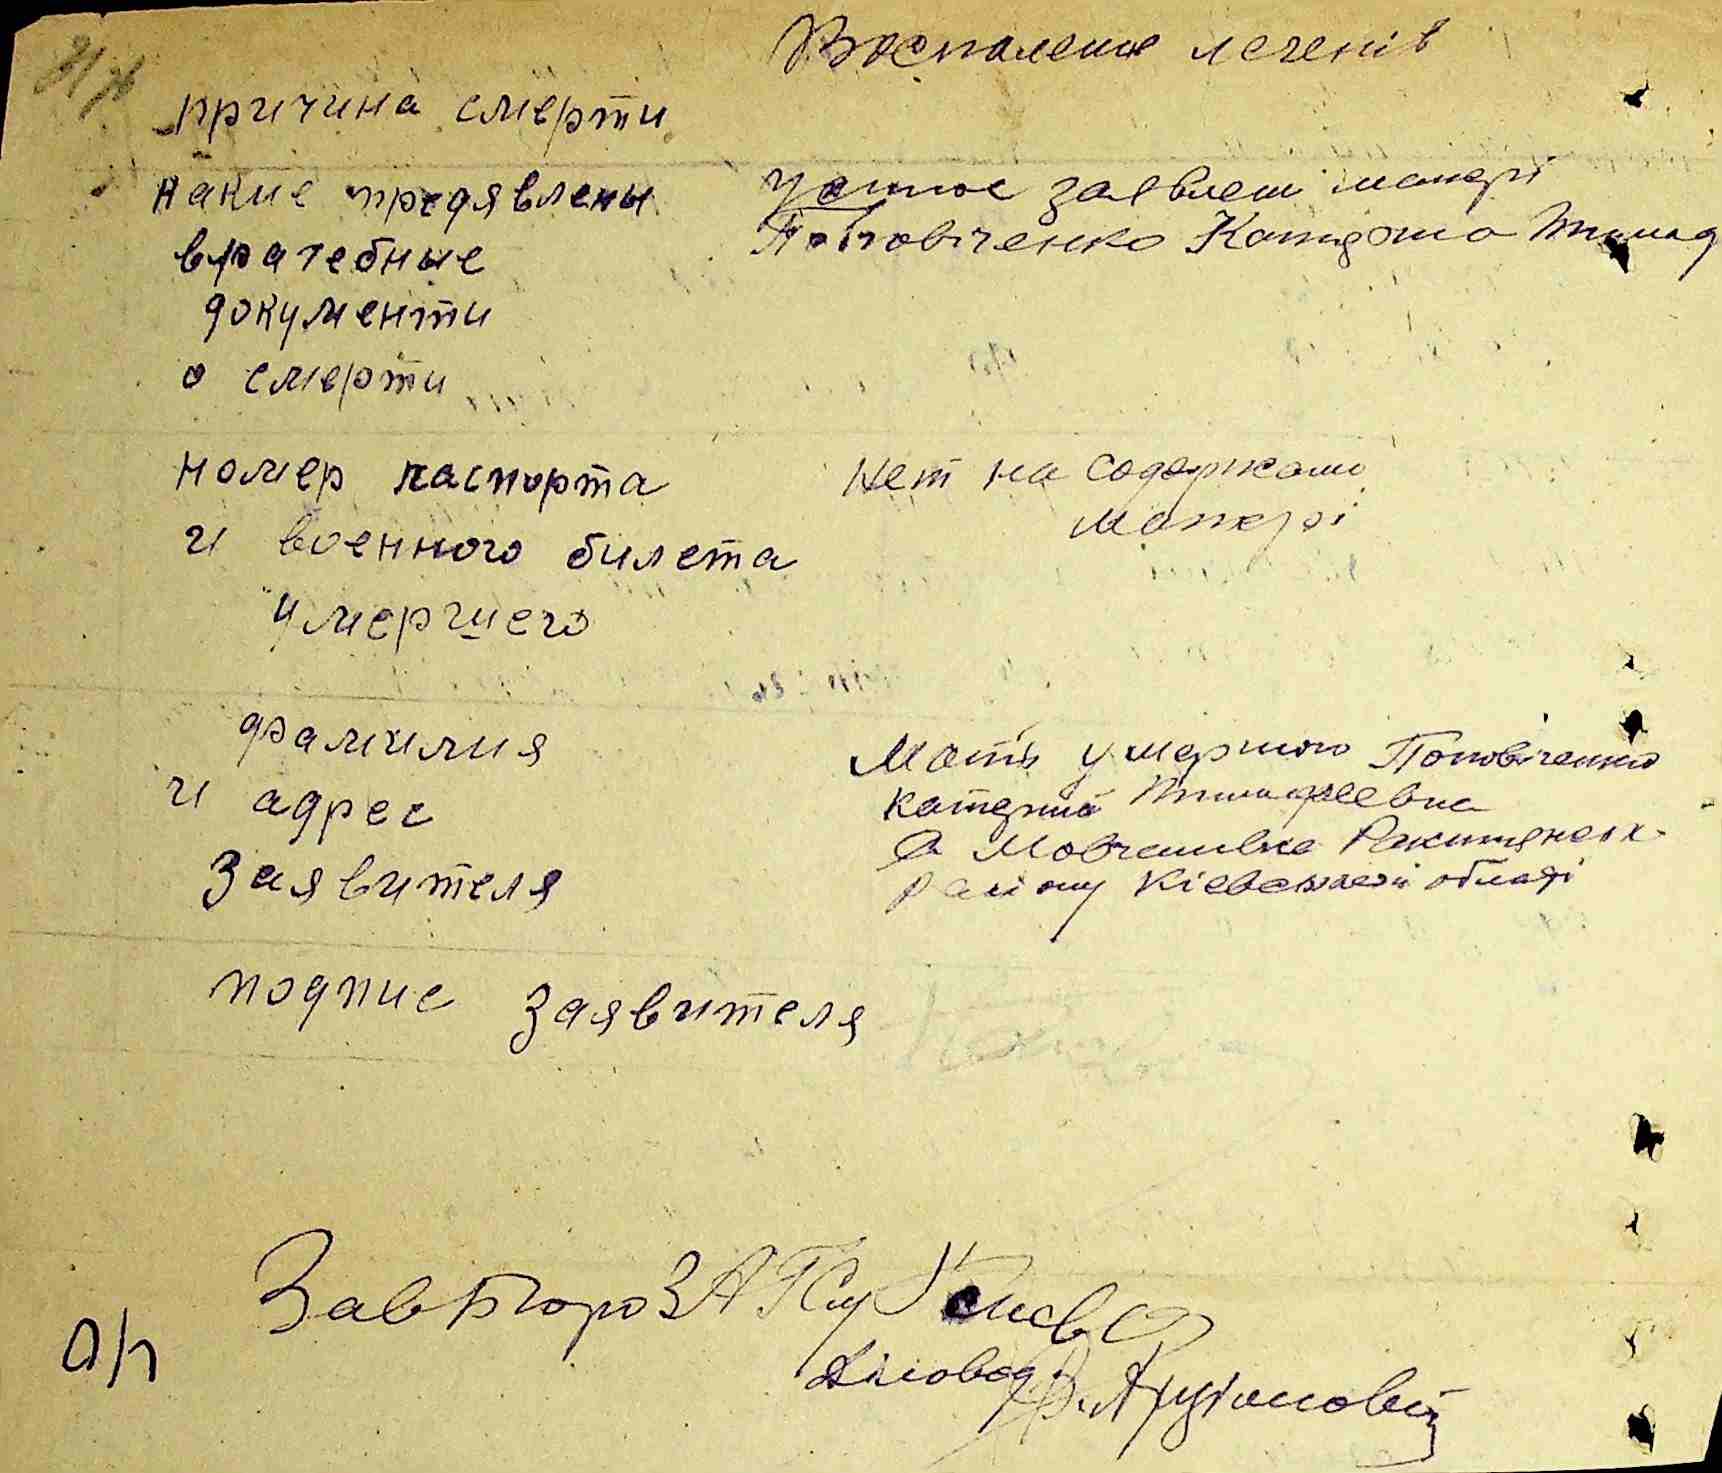 Воспаление легенів
причина смерти
какие предявлены
врачебные
документи
о смерти
устное заявлен матері
Поповіченко Катерина Тимоф
номер паспорта
и военного билета
умершего
Нет на содержани
матері
фамилия
и адрес
заявителя
Мать умершого Поповіченко
катерина Тимофеевна
с Мовчанивка Ракитянск
району Кіевской області
подпис заявителя
Зав Бюро ЗАГСу
Діловод